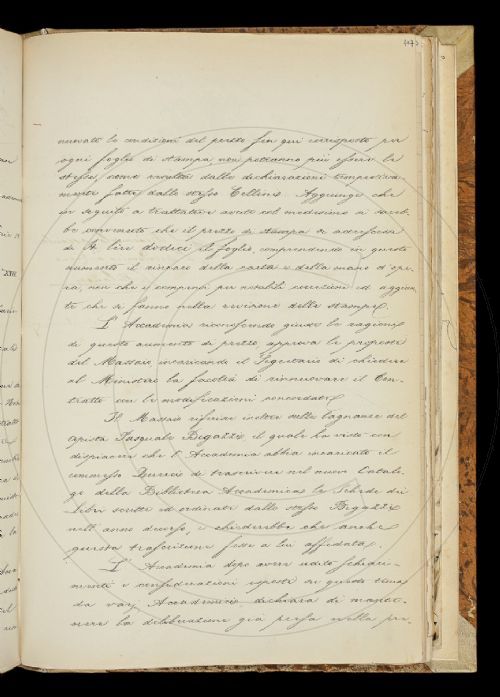 107
nuovato le condizioni del prezzo fra qui corrisposto per
ogni foglio di stampa, non potranno più essere le
stesse, come risulta dalle dichiarazioni
mente fatte dallo stesso Cellini. Aggiunge che
in seguito a trattative avute col medesimo si sareb-
be convenuto che il prezzo di stampa
di It. lire dodici il foglio, comprendendo in questo
aumento il rincaro della carta e della mano d'ope-
ra, non che i compensi per notabili correzioni ed aggiun-
te che si fanno nella revisione delle stampe.
L'Accademia riconoscendo giuste le ragioni
di questo aumento di prezzo approva le proposte
del Massaio incaricando il Segretario di chiedere
al Ministero la facoltà di rinnuovare il Con-
tratto con le modificazioni concordate.
Il Massaio riferisce inoltre sulle lagnanze del
copista Pasquale Bigazzi il quale ha visto con
dispiacere che l'Accademia abbia incaricato il
commesso di trascrivere nel nuovo Catalo-
go della Biblioteca Accademica le Schede dei
Libri scritte ed ordinate dallo stesso Bigazzi
nell'anno decorso, e chiederebbe che anche
questa trascrizione fosse a lui affidata.
L'Accademia dopo avere udito schiari-
menti e considerazioni esposte su questo tema
da varj Accademici dichiara di mante-
nere la deliberazione già presa nella pre-